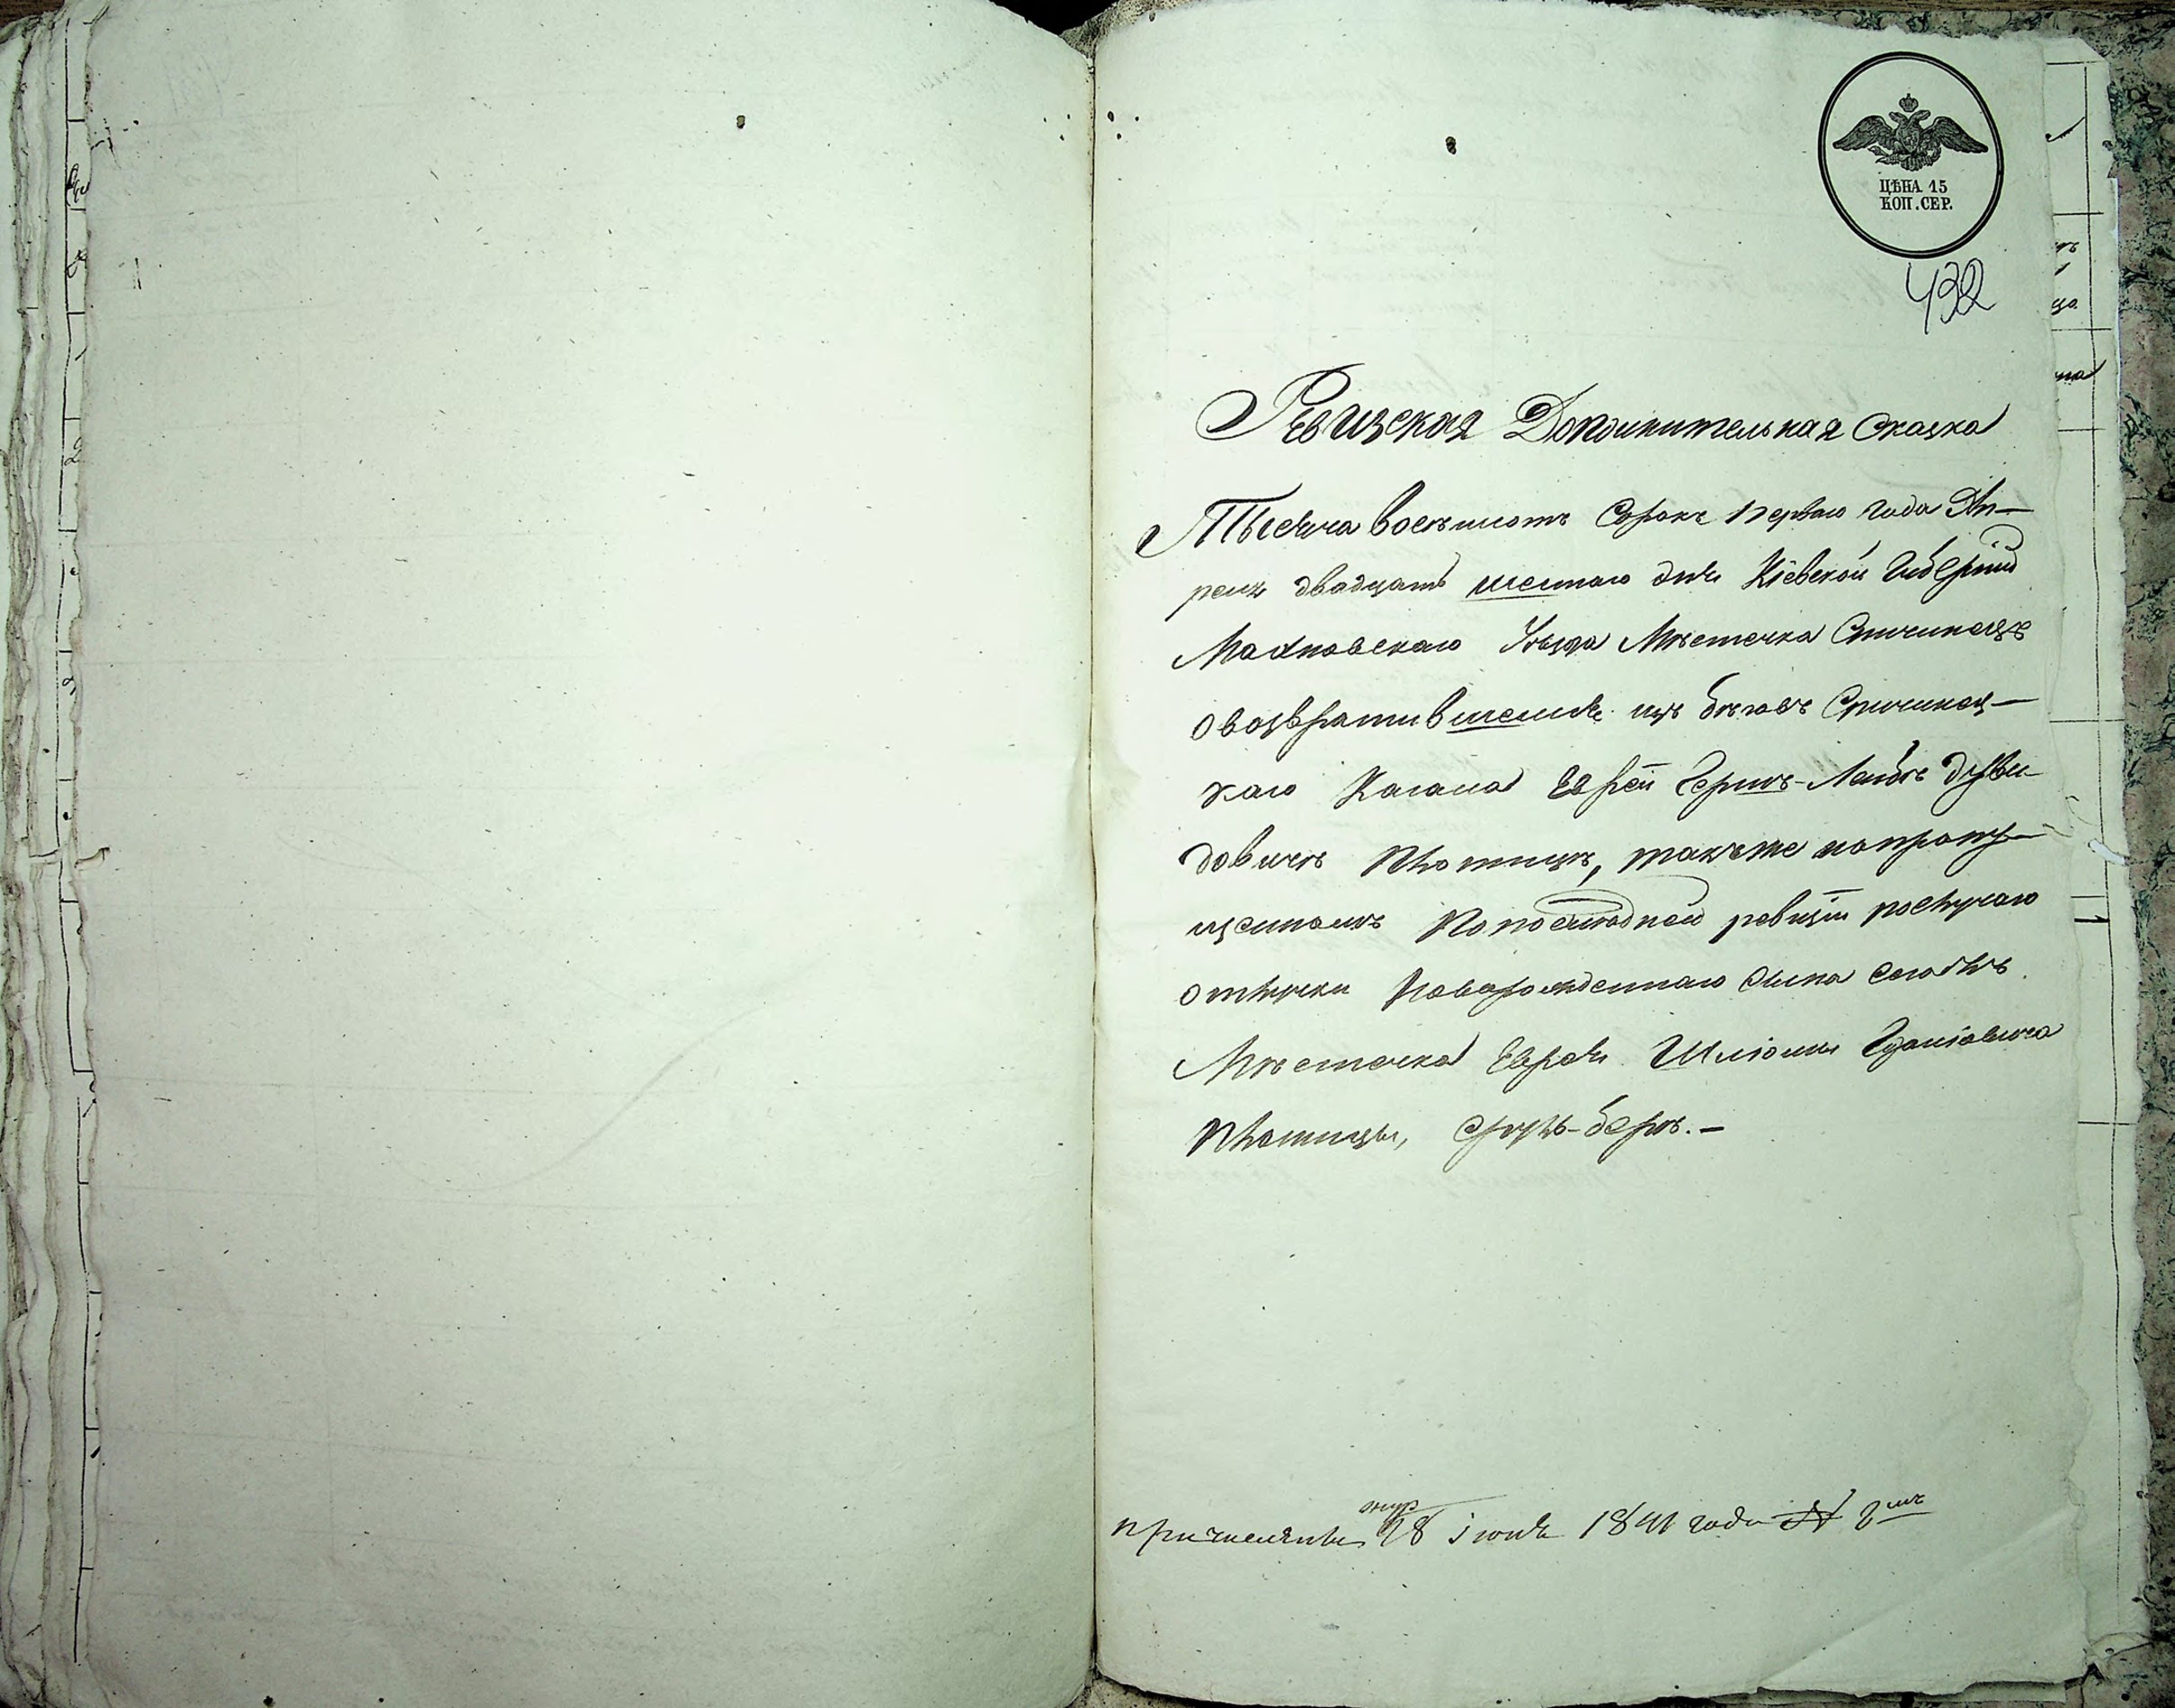 ЦѢНА 15
КОП. СЕР.
432
Ревизская Дополнительная Сказка
Тысяча восемьсотъ Сорокъ первого года Ап-
реля двадцать шестаго дня Кіевской Губерніи
Махновскаго Уѣзда Мѣстечка Спичинецъ
о возвратившемся изъ бѣговъ Спичинец-
каго Кагала Еврей Гершъ-Лейбѣ Дуви-
довичѣ, также
по последней ревизіи по случаю
отлучки Новорожденнаго сына сего жъ
Мѣстечка Еврея Шліомы
беръ. -
жур
18 іюня 1841 года N